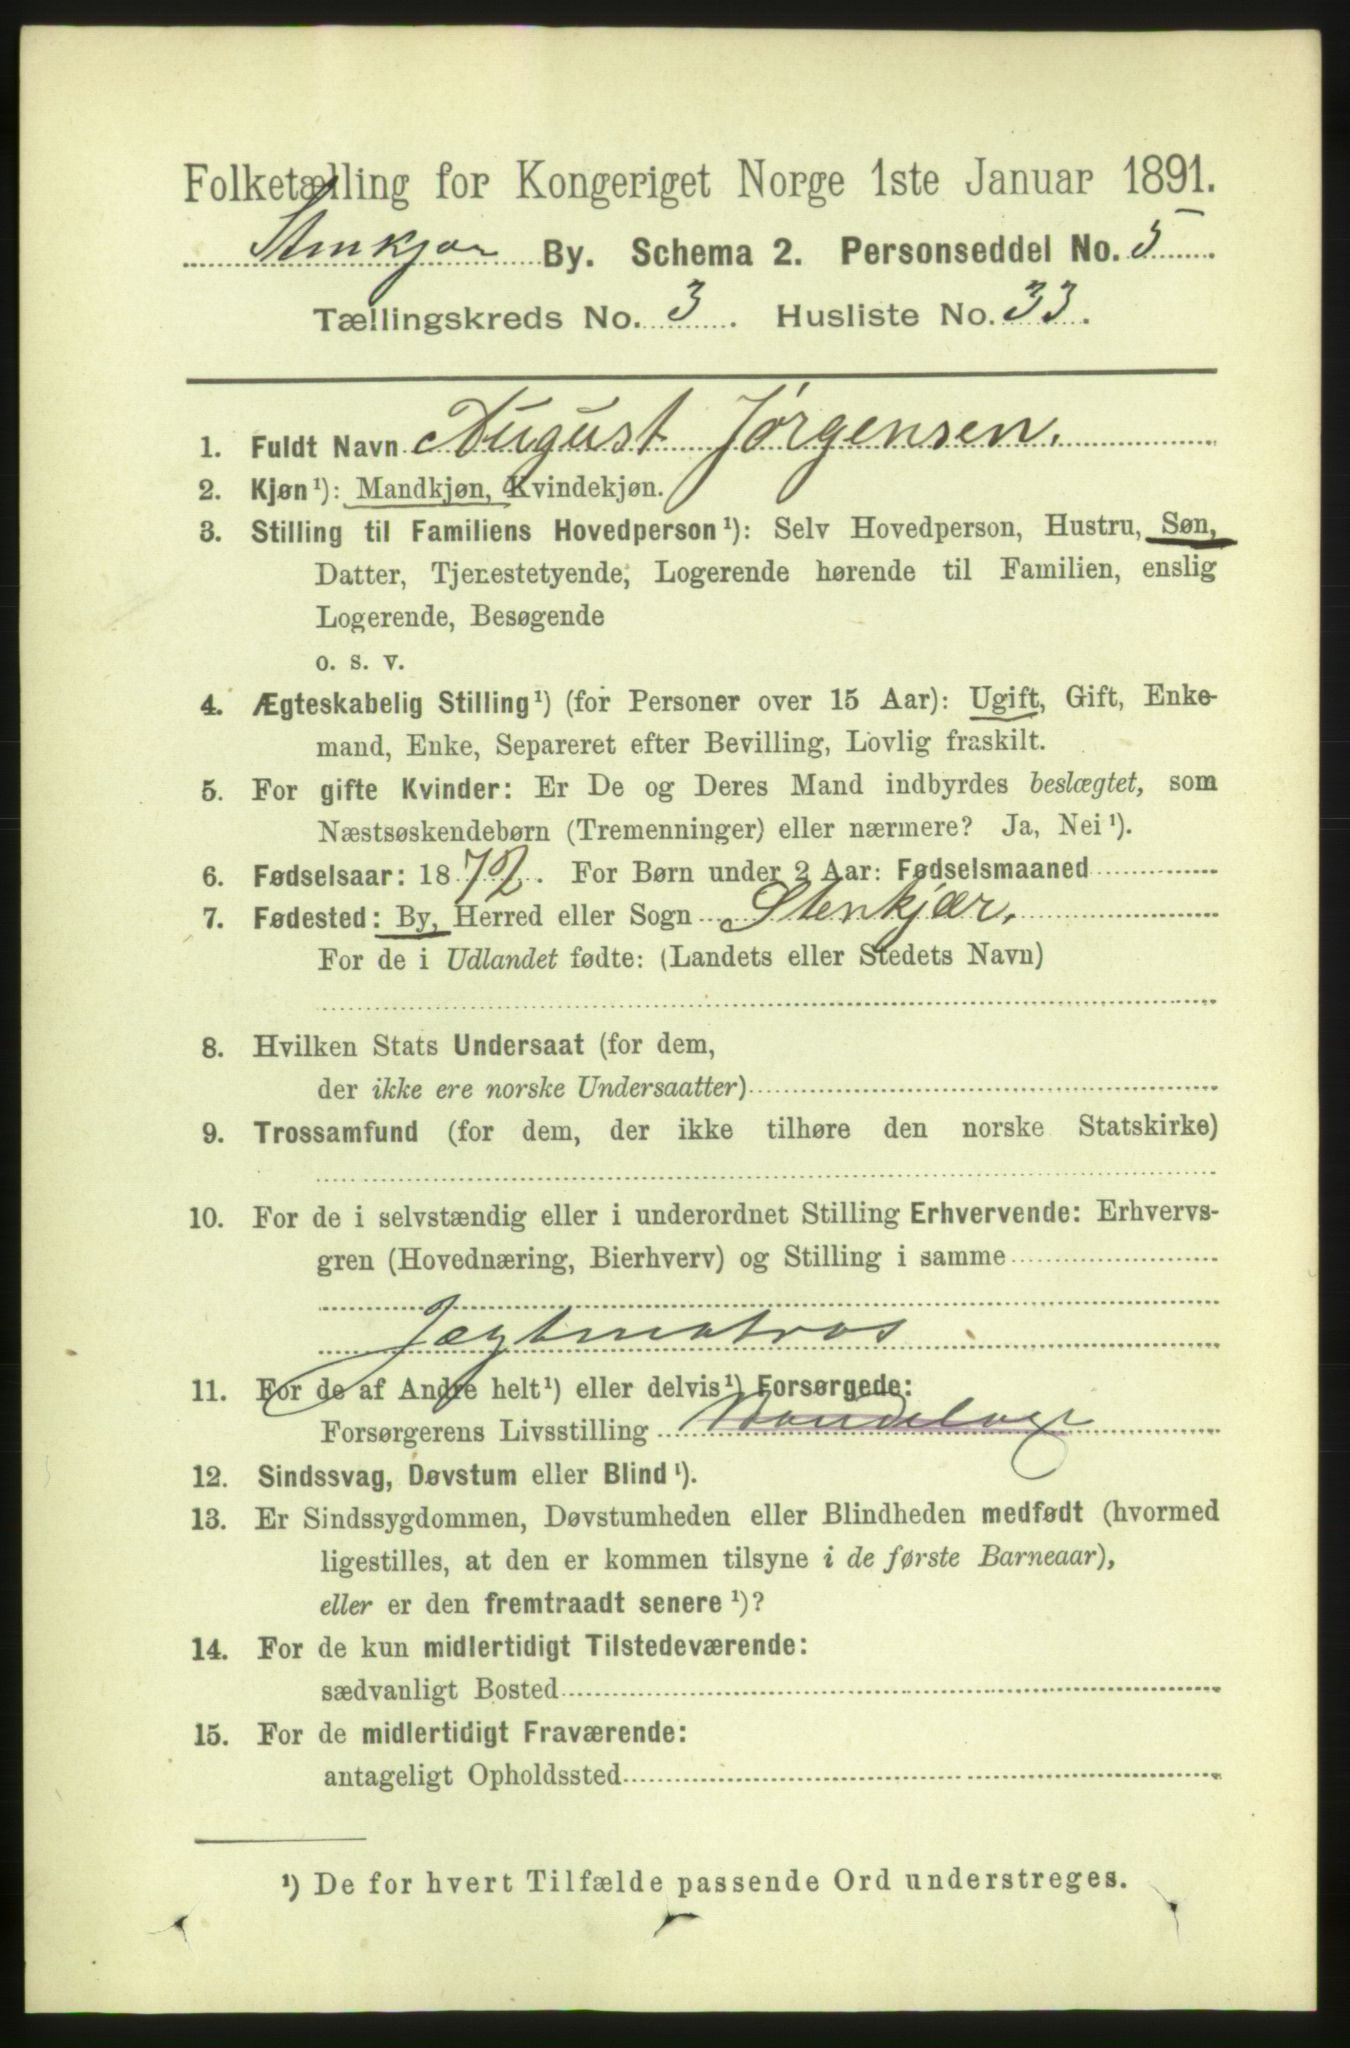 Folketælling for Kongeriget Norge 1ste Januar 1891.
Stenkjær By. Schema 2. Personseddel No. 5
Tællingskreds No. 3. Husliste No. 33.
1. Fuldt Navn August Jørgensen.
2. Kjøn¹): Mandkjøn, Kvindekjøn.
3. Stilling til Familiens Hovedperson¹): Selv Hovedperson, Hustru, Søn,
Datter, Tjenestetyende, Logerende hørende til Familien, enslig
Logerende, Besøgende
o. s. v.
4. Ægteskabelig Stilling¹) (for Personer over 15 Aar): Ugift, Gift, Enke-
mand, Enke, Separeret efter Bevilling, Lovlig fraskilt.
5. For gifte Kvinder: Er De og Deres Mand indbyrdes beslægtet, som
Næstsøskendebørn (Tremenninger) eller nærmere? Ja, Nei¹).
6. Fødselsaar: 1872. For Børn under 2 Aar: Fødselsmaaned
7. Fødested: By, Herred eller Sogn Stenkjær.
For de i Udlandet fødte: (Landets eller Stedets Navn)
8. Hvilken Stats Undersaat (for dem,
der ikke ere norske Undersaatter)
9. Trossamfund (for dem, der ikke tilhøre den norske Statskirke)
10. For de i selvstændig eller i underordnet Stilling Erhvervende: Erhvervs-
gren (Hovednæring, Bierhverv) og Stilling i samme
Jægtmatros
11. For de af Andre helt¹) eller delvis¹) Forsørgede:
Forsørgerens Livsstilling
12. Sindssvag, Døvstum eller Blind¹).
13. Er Sindssygdommen, Døvstumheden eller Blindheden medfødt (hvormed
ligestilles, at den er kommen tilsyne i de første Barneaar),
eller er den fremtraadt senere¹)?
14. For de kun midlertidigt Tilstedeværende:
sædvanligt Bosted
15. For de midlertidigt Fraværende:
antageligt Opholdssted
¹) De for hvert Tilfælde passende Ord understreges.